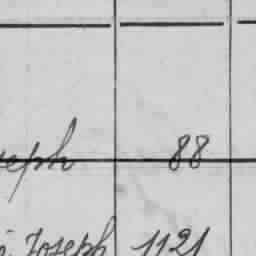 seph 88
Joseph 1121